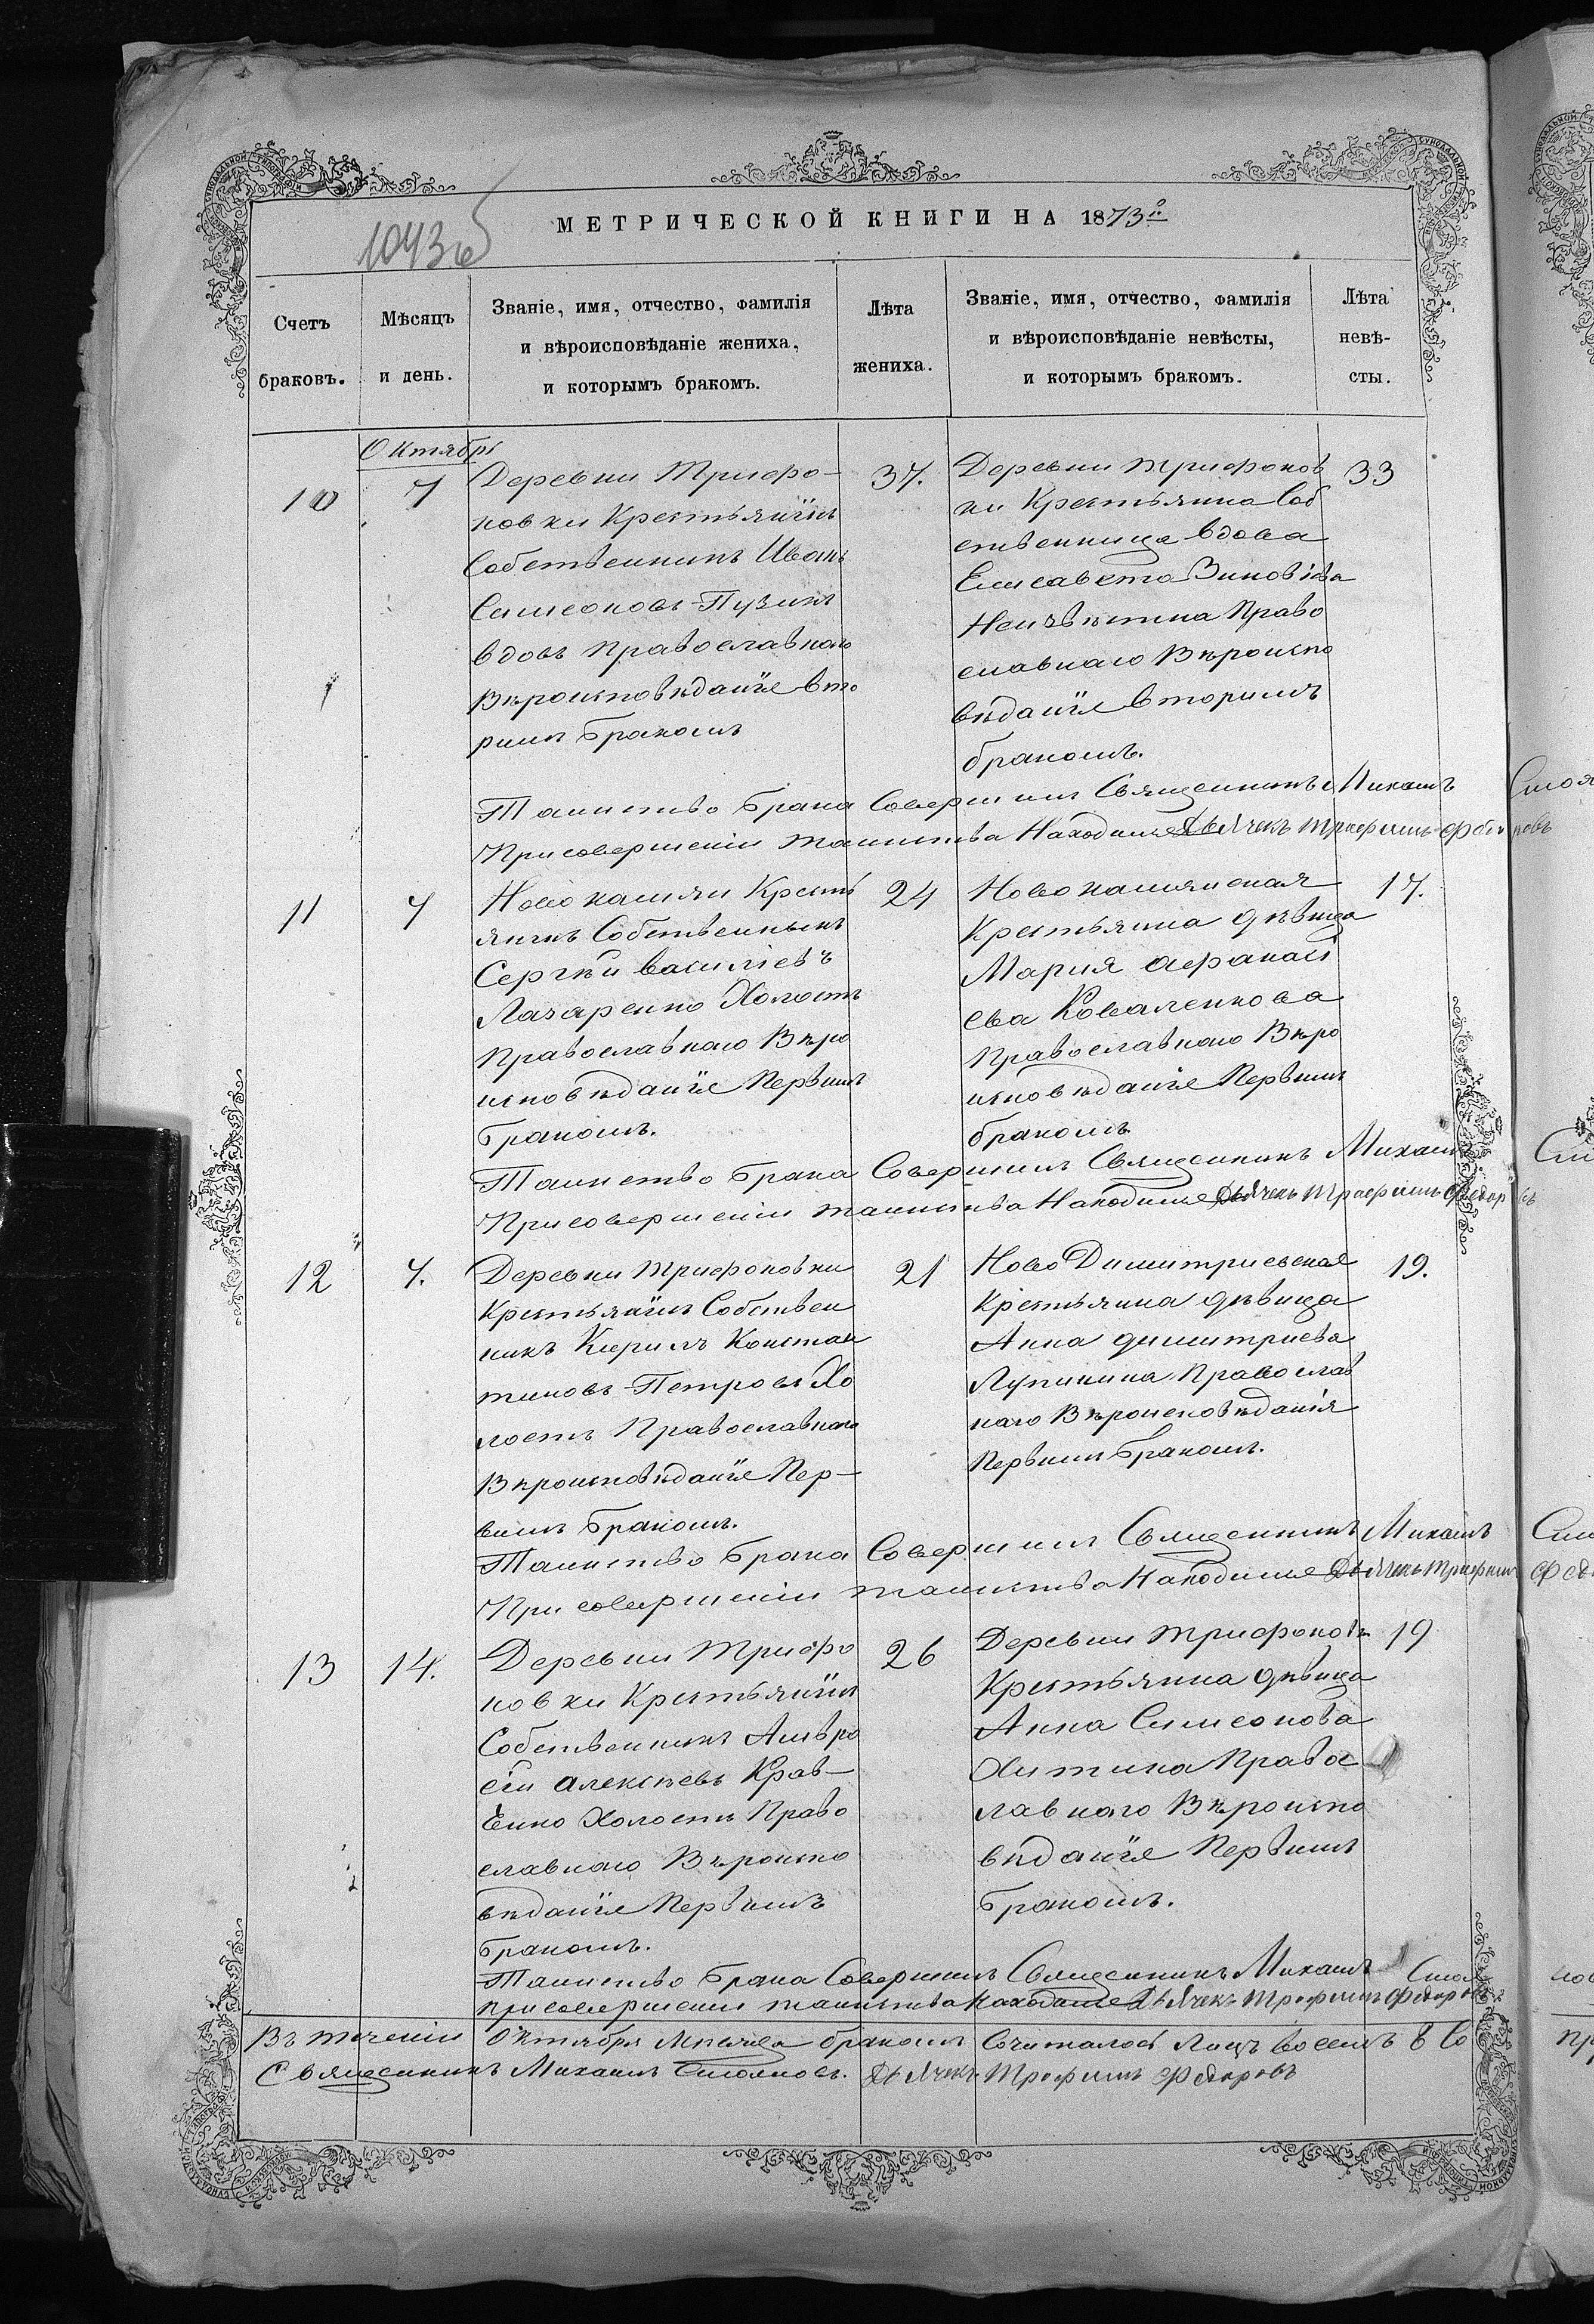 МЕТРИЧЕСКОЙ КНИГИ НА 1873 г.
Счетъ браковъ.
Мѣсяцъ и день.
Званіе, имя, отчество, фамилія
и вѣроисповѣданіе жениха,
и которымъ бракомъ.
Лѣта жениха.
Званіе, имя, отчество, фамилія
и вѣроисповѣданіе невѣсты,
и которымъ бракомъ.
Лѣта невѣ-
сты.
Октябрь
10
7
Деревни Трифо-
новки Крестьянинъ
Собственникъ Иванъ
Симеоновъ Пузикъ
вдовъ Православнаго
Вѣроисповѣданія вто
римъ бракомъ
37.
Деревни Трифонов
ки Крестьянина Соб
ственница вдова
Елисавета Зиновіева
Право
славнаго Вѣроиспо
вѣданія вторимъ
бракомъ.
33
Таинство брака Совершилъ Священникъ Михаилъ
При совершеніи таинства Находился Дьячекъ Трофимъ Федоровъ
11
7
Крестъ
янинъ Собственникъ
Сергѣй Василіевъ
Лазаренко Холостъ
Православнаго Вѣро
исповѣданія Первимъ
бракомъ.
24
Крестьянина дѣвица
Мария Афанасі
ева Коваленкова
Православнаго Вѣро
исповѣданія Первимъ
бракомъ
17.
Таинство брака Совершилъ Священникъ Михаилъ
При совершеніи таинства Находился Дьячекъ Трофимъ Федоровъ
12
7.
Деревни Трифоновки
Крестьянинъ Собствен
никъ Кирилъ Констан
тиновъ Петровъ Хо
лостъ Православнаго
Вѣроисповѣданія Пер-
вимъ бракомъ.
21
Ново Димитриевская
Крестьянина дѣвица
Анна Димитриева
Лупинина Православ
наго Вѣроисповѣданія
Первимъ бракомъ.
19.
Таинство брака Совершилъ Священникъ Михаилъ
При совершеніи таинства Находился Дьячекъ Трофимъ
13
14.
Деревни Трифо
новки Крестьянинъ
Собственникъ Амвро
сій Алексѣевъ Крав-
Холостъ Право
славнаго Вѣроиспо
вѣданія Первимъ
бракомъ.
26
Деревни Трифоновк
Крестьянина дѣвица
Анна Симеонова
Хитина Правос
лавнаго Вѣроиспо
вѣданія Первимъ
бракомъ.
19
Таинство брака Совершилъ Священникъ Михаилъ
При совершении таинства находился Дьячекъ Трофимъ Федоровъ
Въ течении Октября Мѣсяца бракомъ Сочиталось Лицъ восемъ 8 Со
Священникъ Михаилъ Стояновъ. Дьячекъ Трофимъ Федоровъ